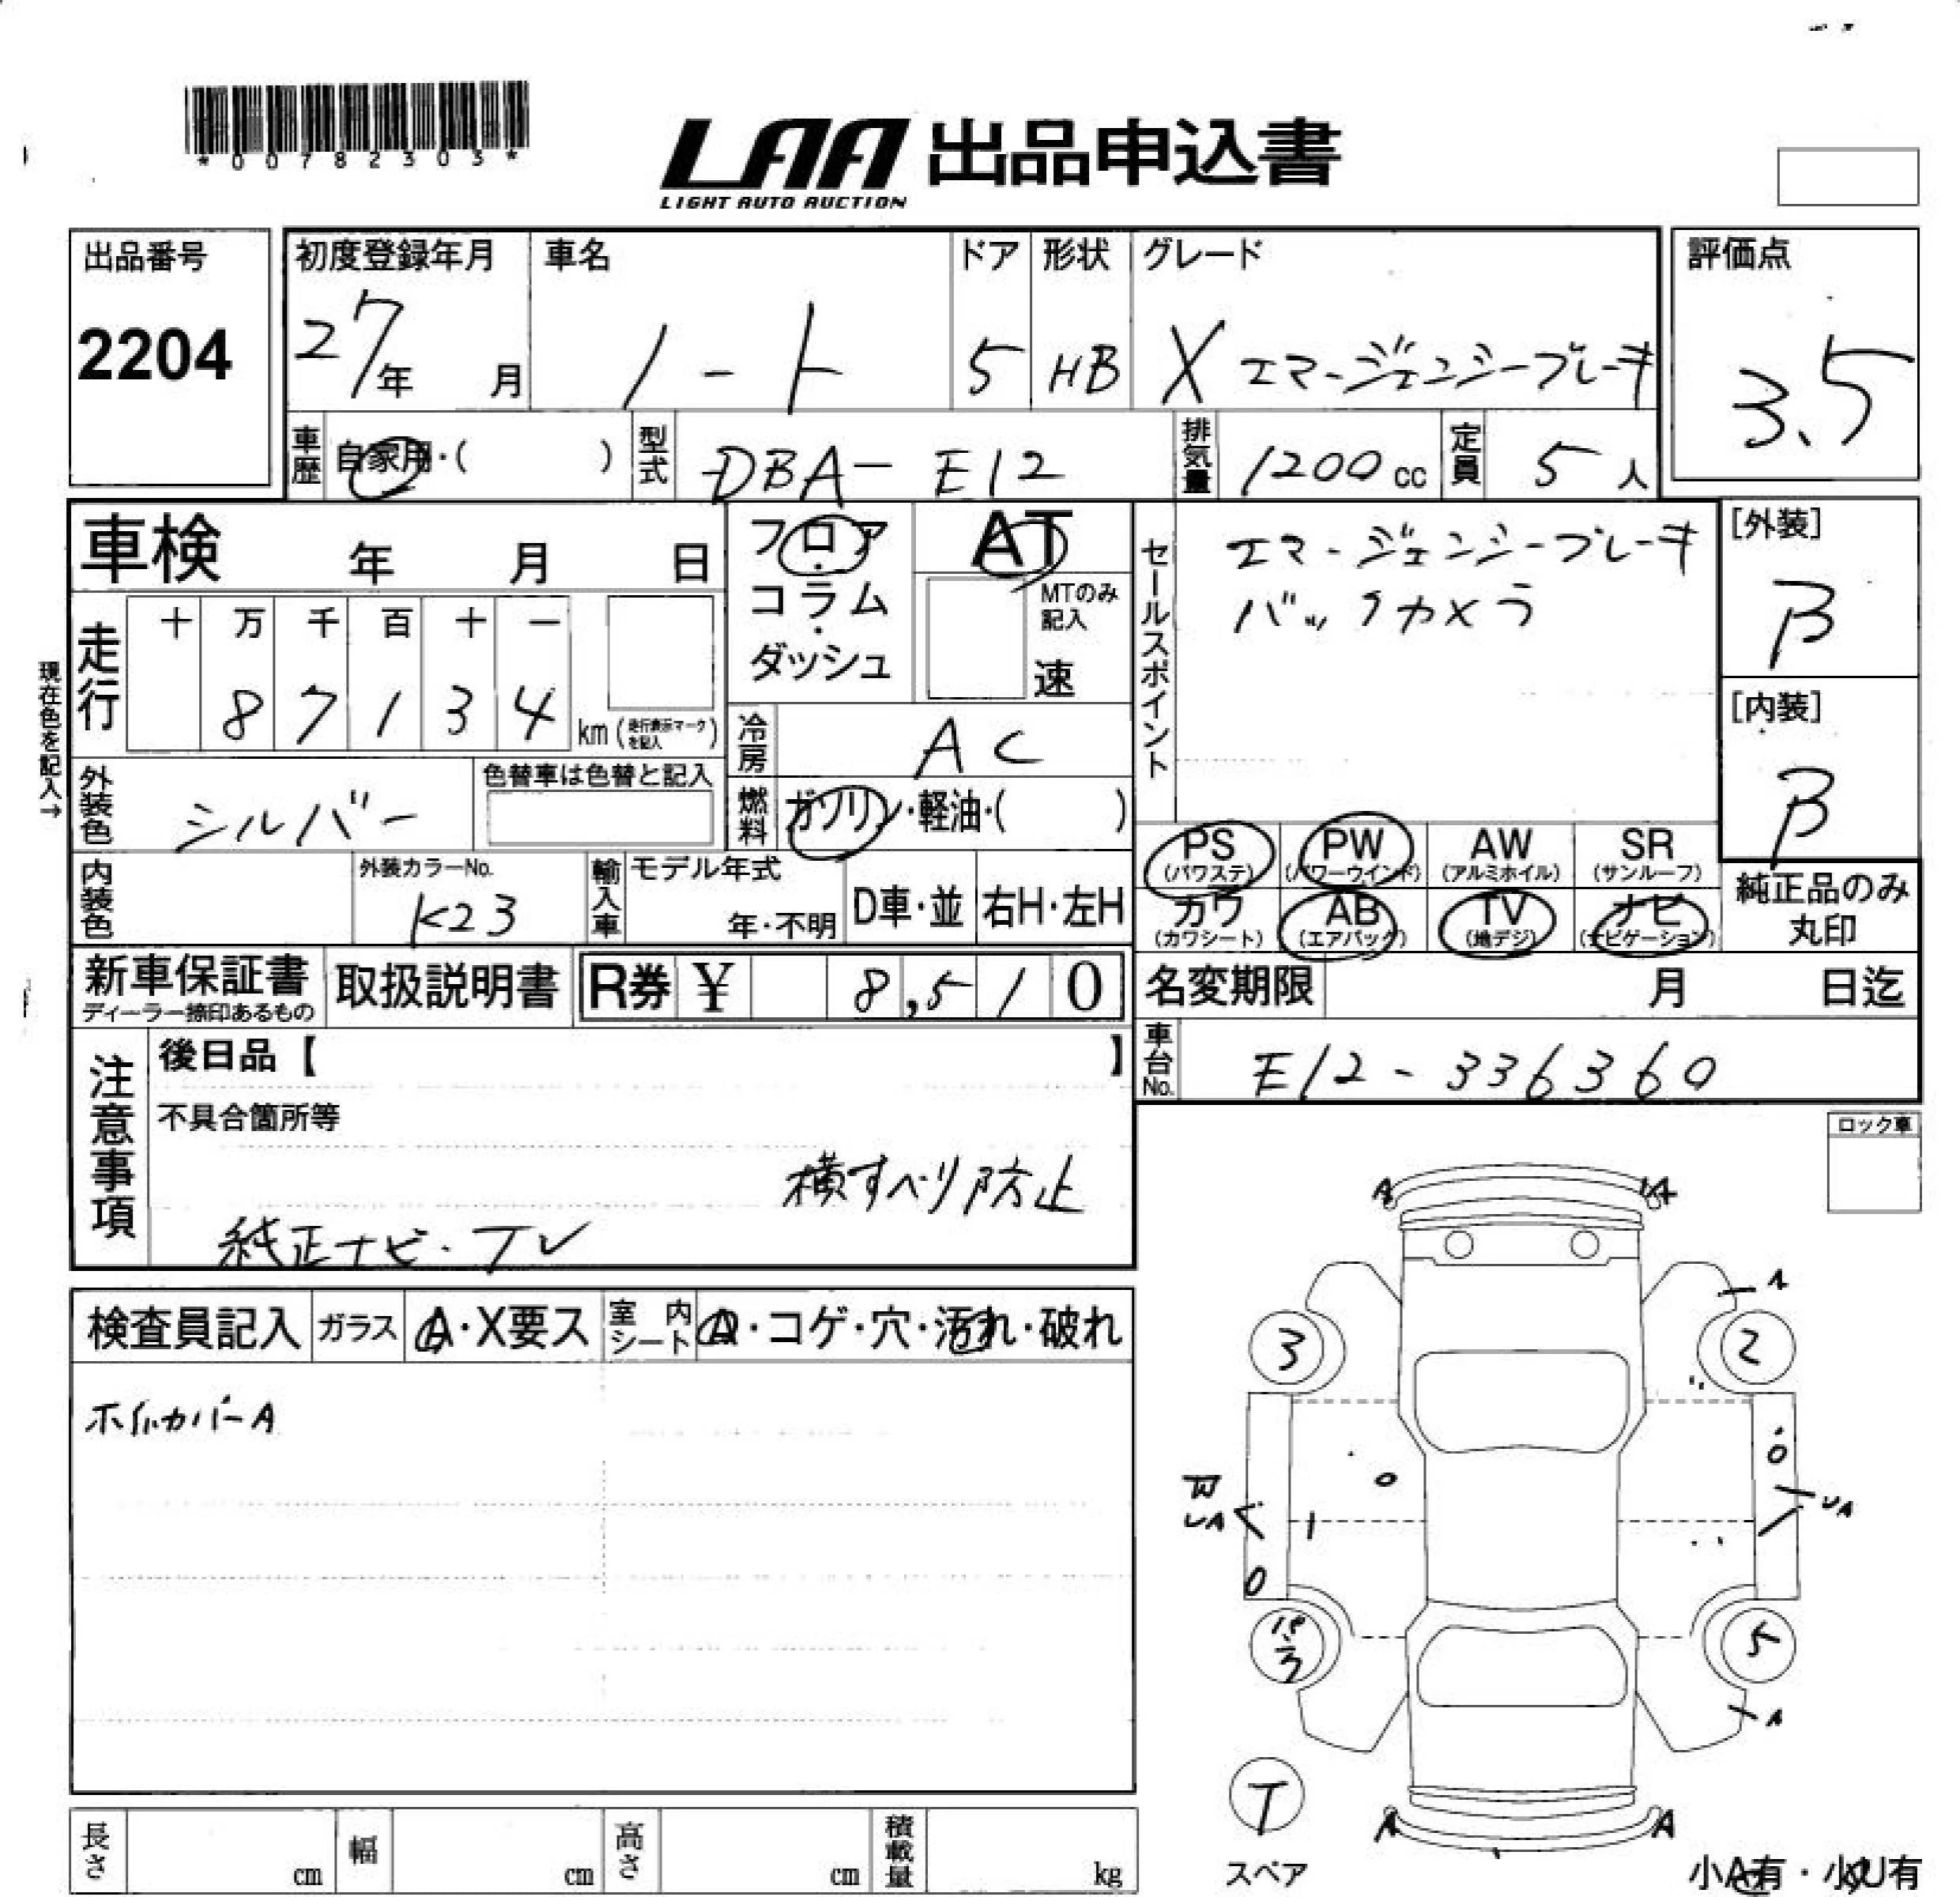 *00782303*
LAA 出品申込書
LIGHT AUTO AUCTION
出品番号
2204
初度登録年月
27年 月
車名
ノート
ドア
5
形状
HB
グレード
X エマージェンシーブレーキ
評価点
3.5
車歴 自家用・( )
型式 DBA-E12
排気量 1200cc
定員 5人
車検 年 月 日
フロア・コラム・ダッシュ
AT
MTのみ記入
速
セールスポイント
エマージェンシーブレーキ
バックカメラ
[外装]
B
[内装]
B
現在色を記入→
走行
十 万 千 百 十 一
8 7 1 3 4 km(走行表示マークを記入)
冷房 AC
外装色 シルバー
色替車は色替と記入
燃料 ガソリン・軽油・( )
PS (パワステ)
PW (パワーウインド)
AW (アルミホイル)
SR (サンルーフ)
カワ (カワシート)
AB (エアバック)
TV (地デジ)
ナビ (ナビゲーション)
純正品のみ丸印
内装色
外装カラーNo.
K23
輸入車 モデル年式
年・不明
D車・並
右H・左H
新車保証書
ディーラー捺印あるもの
取扱説明書
R券 ¥ 8,510
名変期限 月 日迄
車台No. E12-336360
注意事項
後日品【 】
不具合箇所等
横すべり防止
純正ナビ・TV
ロック車
検査員記入
ガラス A・X要ス
室内シート A・コゲ・穴・汚れ・破れ
ホイルカバーA
A A
A
3 2
W
UA UA
パ3 5
A
T
スペア
A A
小A有・小U有
長さ cm
幅 cm
高さ cm
積載量 kg